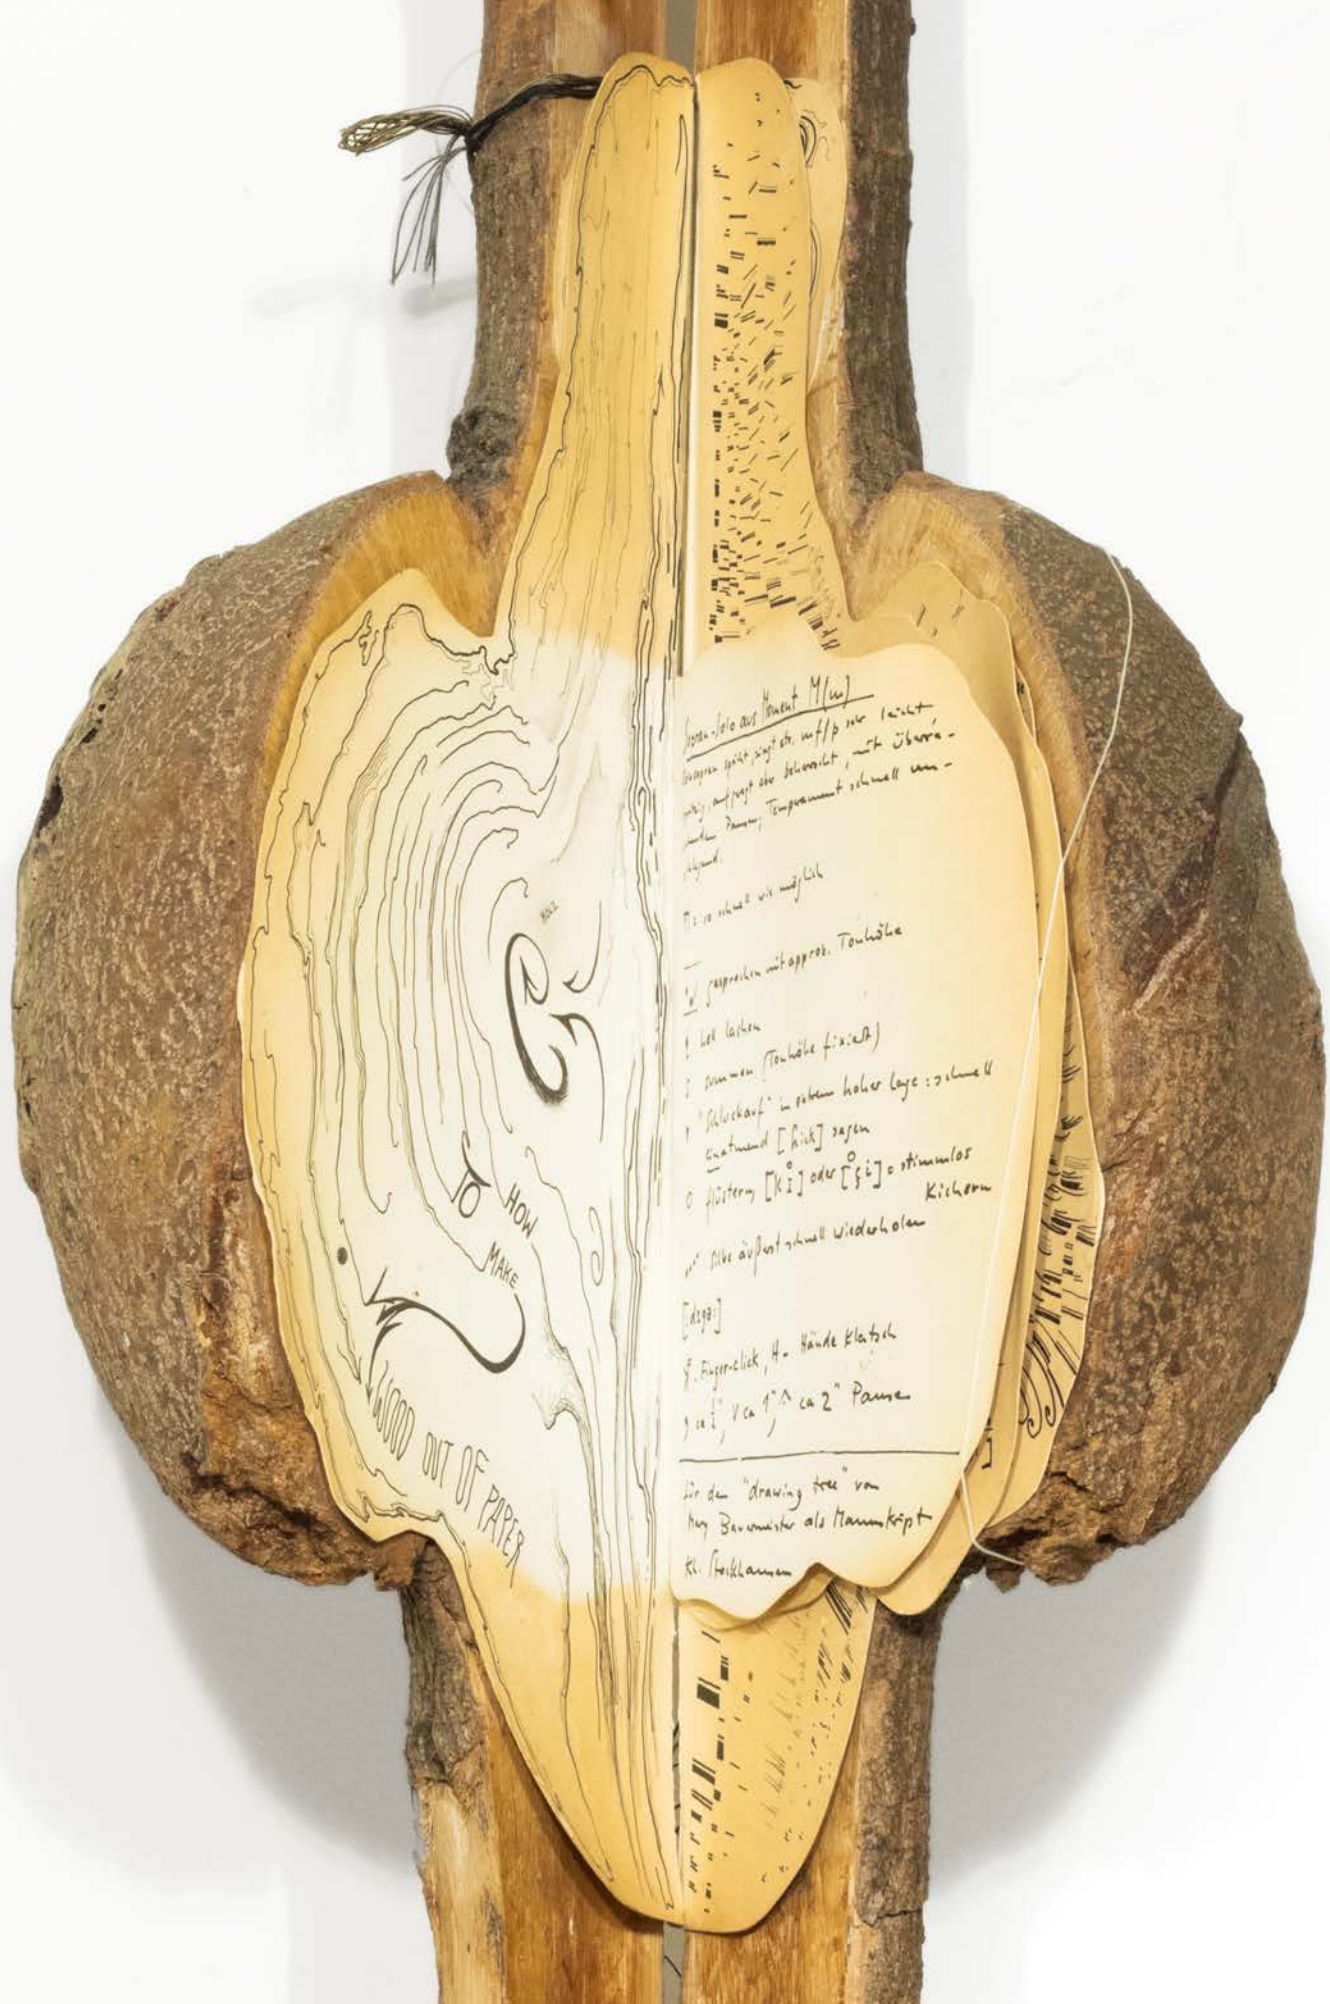 HOLZ
TO
HOW
MAKE
WOOD OUT OF PAPER
Sopran-Solo aus Moment M(m)
Solosopran spricht, singt etc. mf/p sehr leicht
aufgeregt aber beherrscht, mit überra-
Pausen; Temperament schnell um-
schlagend.
so schnell wie möglich
gesprochen mit approx. Tonhöhe
hell lachen
summen (Tonhöhe fixiert)
"Schluckauf" in extrem hoher Lage: schnell
einatmend [hick] sagen
flüstern [ki] oder [çi] = stimmlos
Kichern
Silbe äußerst schnell wiederholen
[dzgə:]
Finger-click, H = Hände klatsch
ca ½", V ca 1", ca 2" Pause
Für den "drawing tree" von
Mary Bauermeister als Manuskript
Kh. Stockhausen